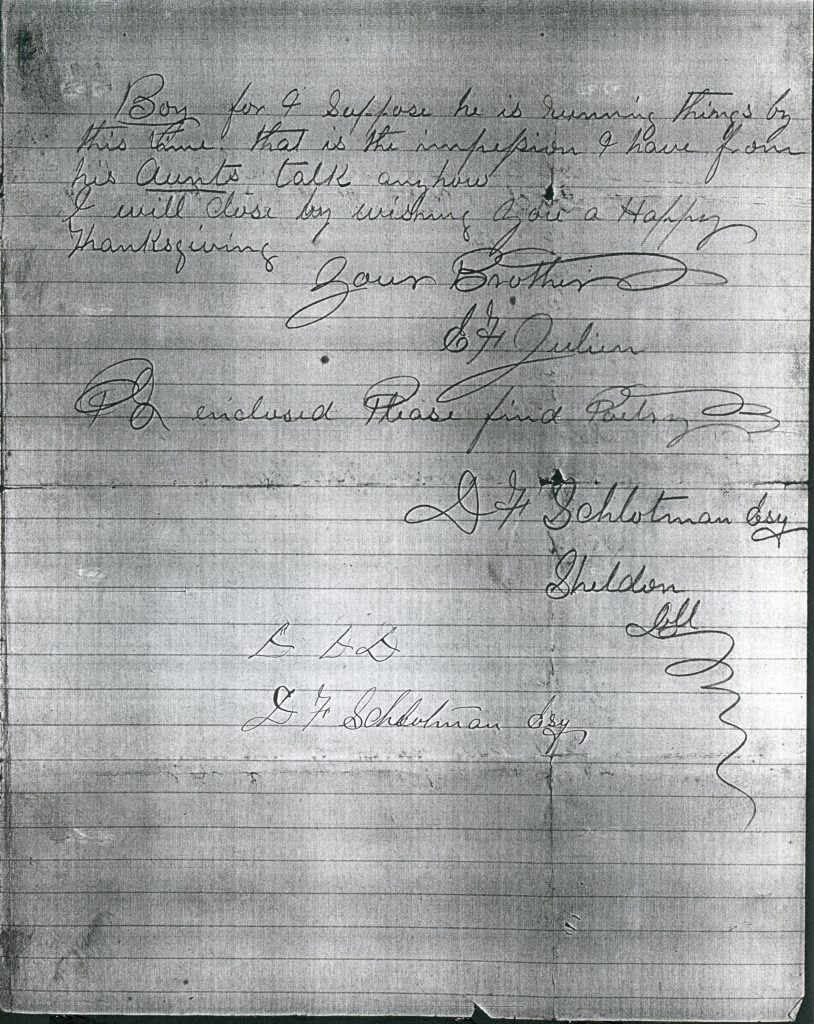 Boy for I suppose he is running things by
this time. that is the impression I have from
his Aunts talk anyhow
I will close by wishing you a Happy
Thanksgiving
Your Brother
E F Julien
PS enclosed Please find Poetry
D F Schlotman Esq
Sheldon
Ill
D D D
D F Schlotman Esq